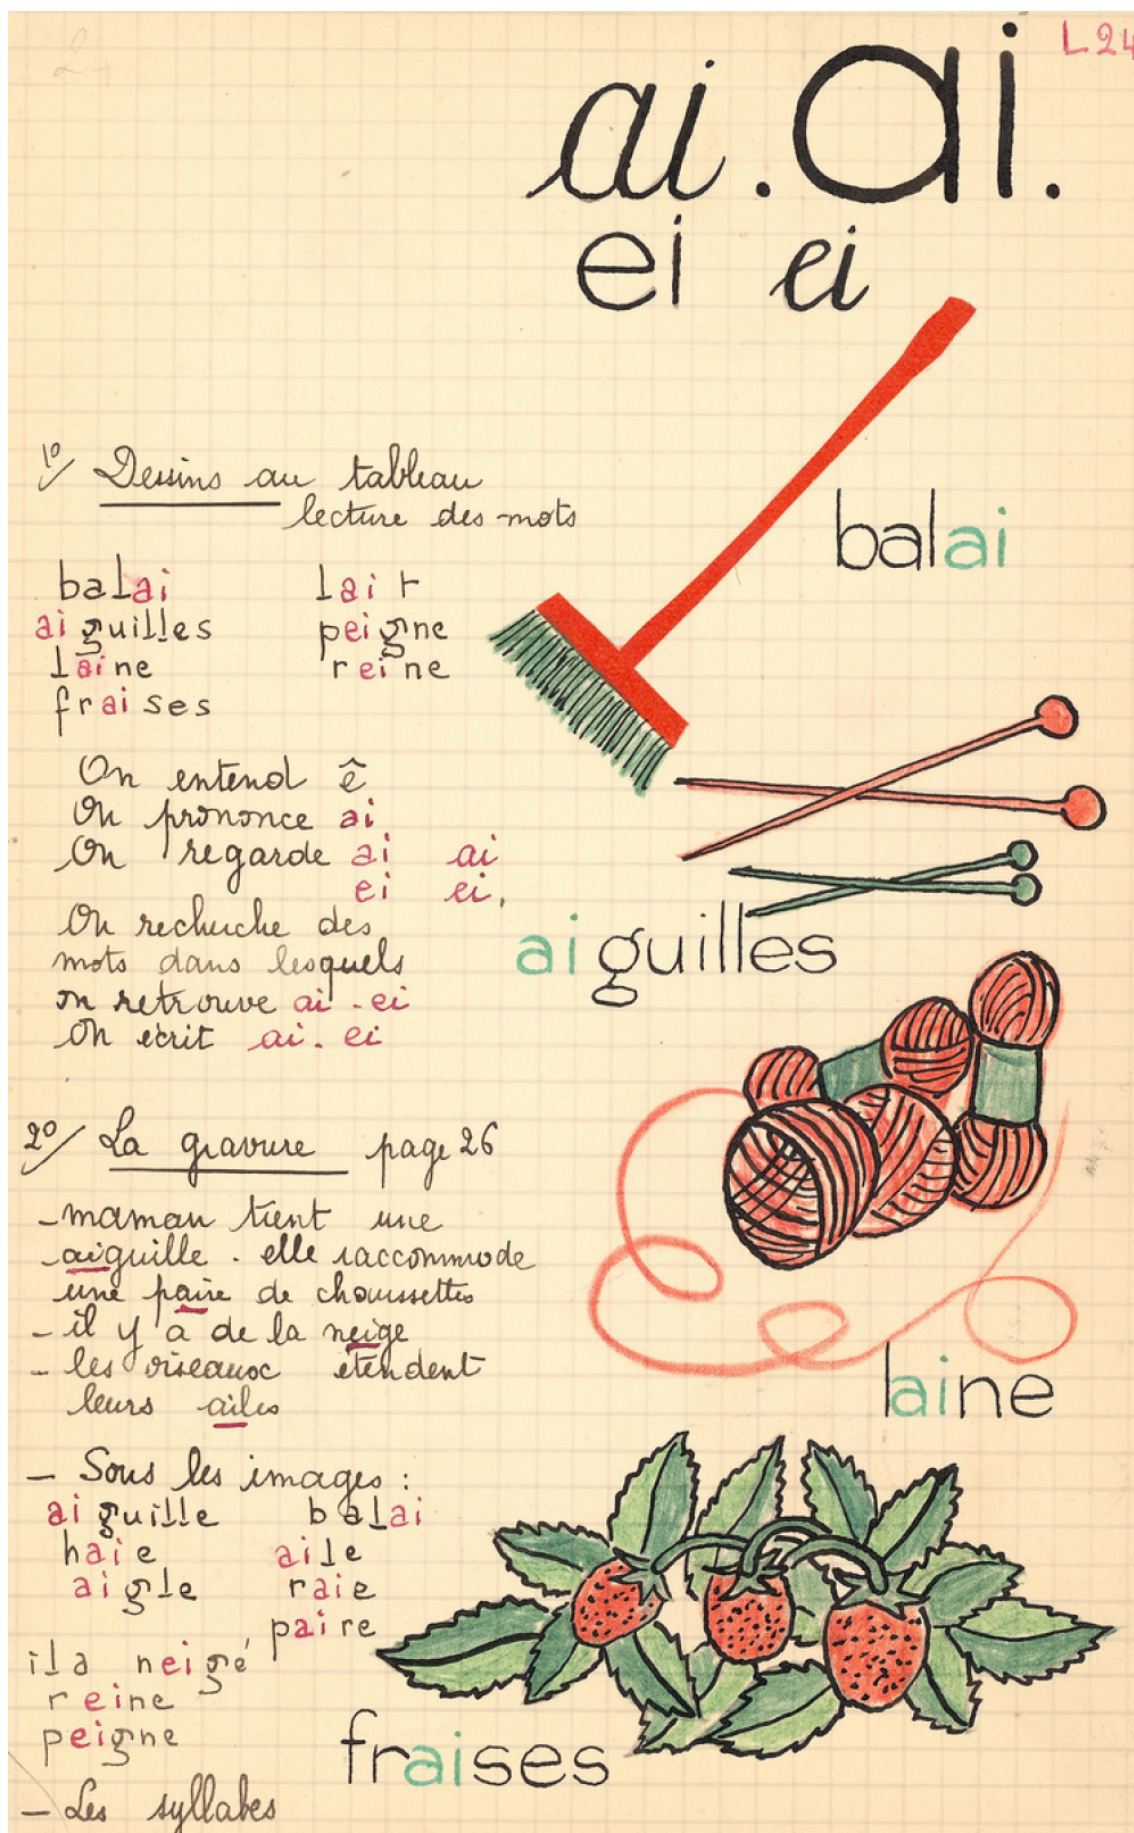 L 24
ai . ai.
ei ei
1º/ Dessins au tableau
lecture des mots
balai lait
aiguilles peigne
laine reine
fraises
On entend ê
On prononce ai
On regarde ai ai
ei ei.
On recherche des
mots dans lesquels
on retrouve ai - ei
On écrit ai. ei
2º/ La gravure page 26
- maman tient une
aiguille . elle raccommode
une paire de chaussettes
- il y a de la neige
- les oiseaux étendent
leurs ailes
- Sous les images :
aiguille balai
haie aile
aigle raie
paire
il a neigé
reine
peigne
- Les syllabes
balai
aiguilles
laine
fraises